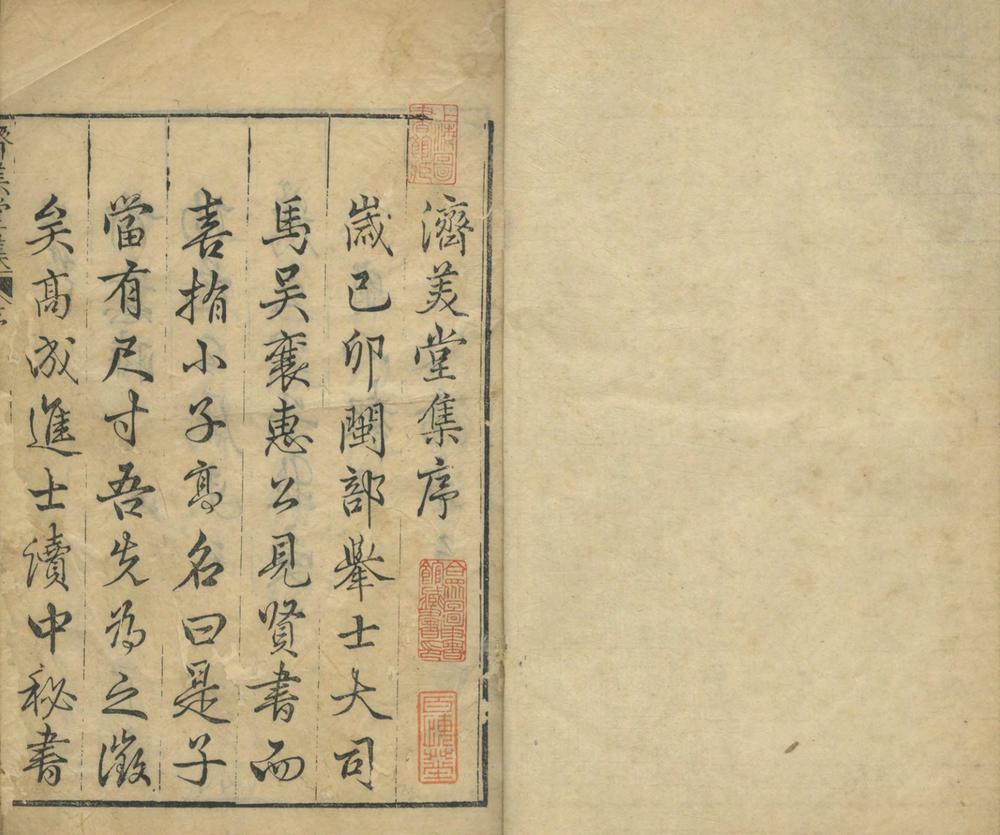 濟美堂集序
歲己卯閩部舉士大司
馬吳襄惠公見賢書而
喜指小子高名曰是子
當有尺寸吾先為之徵
矣高成進士讀中秘書
上海圖書館藏